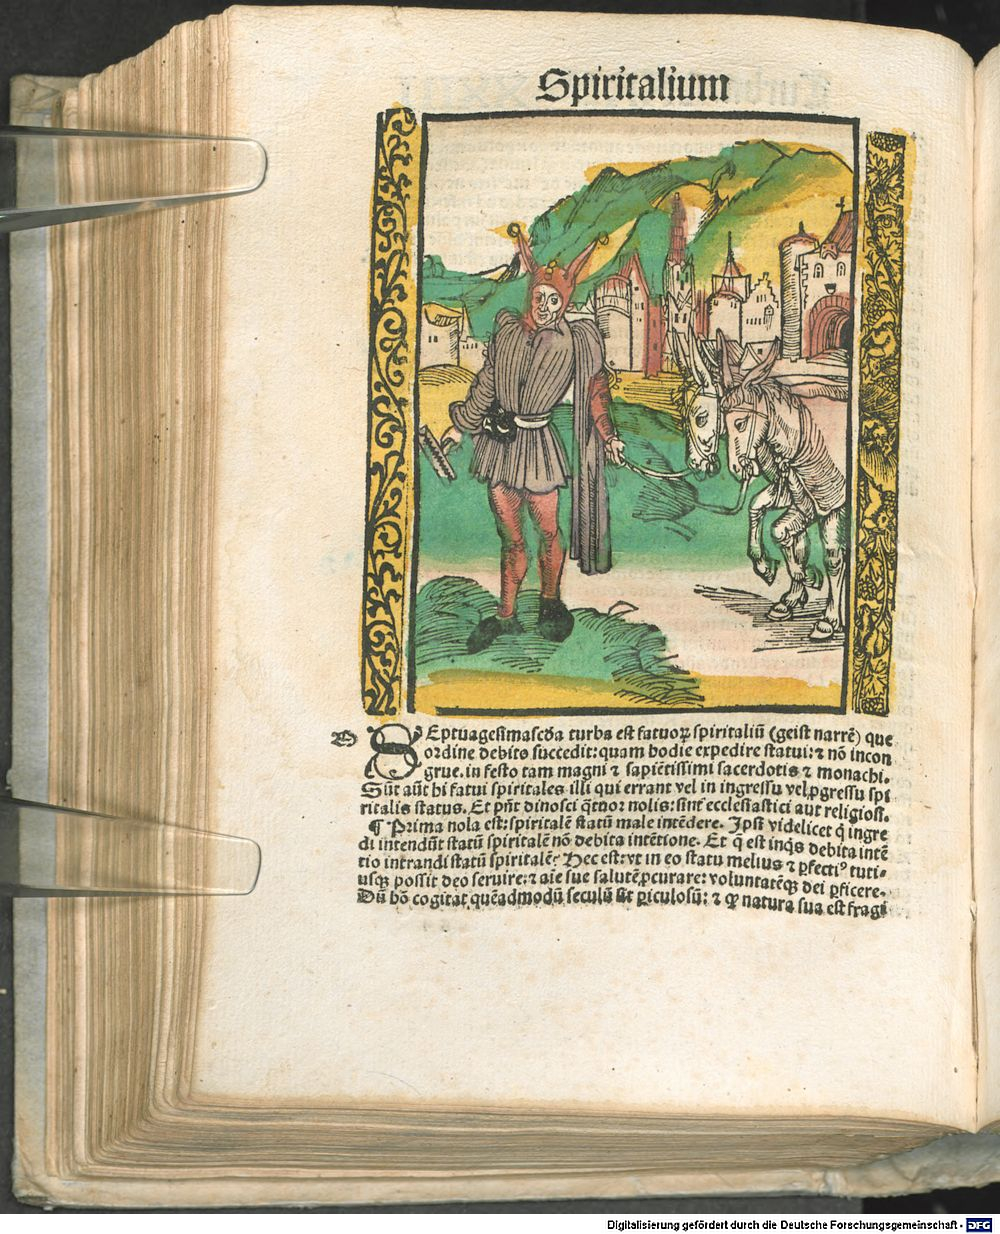 Spiritalium
O SEptuagesimascďa turba est fatuoꝝ spiritaliū (geist narrē) que
ordine debito succedit: quam hodie expedire statui: ⁊ nō incon
grue. in festo tam magni ⁊ sapiētissimi sacerdotis ⁊ monachi.
Sūt aūt hi fatui spiritales illi qui errant vel in ingressu vel ꝓgressu spi
ritalis status. Et pn̄t dinosci q̄tuor nolis: sint ecclesiastici aut religiosi.
¶ Prima nola est: spiritalē statū male intēdere. Ipsi videlicet q̇ ingre
di intendūt statū spiritalē nō debita intētione. Et q̄ est inq̇s debita intē
tio intrandi statū spiritalē? Hec est: vt in eo statu melius ⁊ ꝑfectiꝰ tuti-
usqꝫ possit deo seruire: ⁊ aīe sue salutē ꝓcurare: voluntatēqꝫ dei ꝑficere.
Dū hō cogitat quēadmodū seculū sit ꝑiculosū: ⁊ ꝙ natura sua est fragi
Digitalisierung gefördert durch die Deutsche Forschungsgemeinschaft - DFG